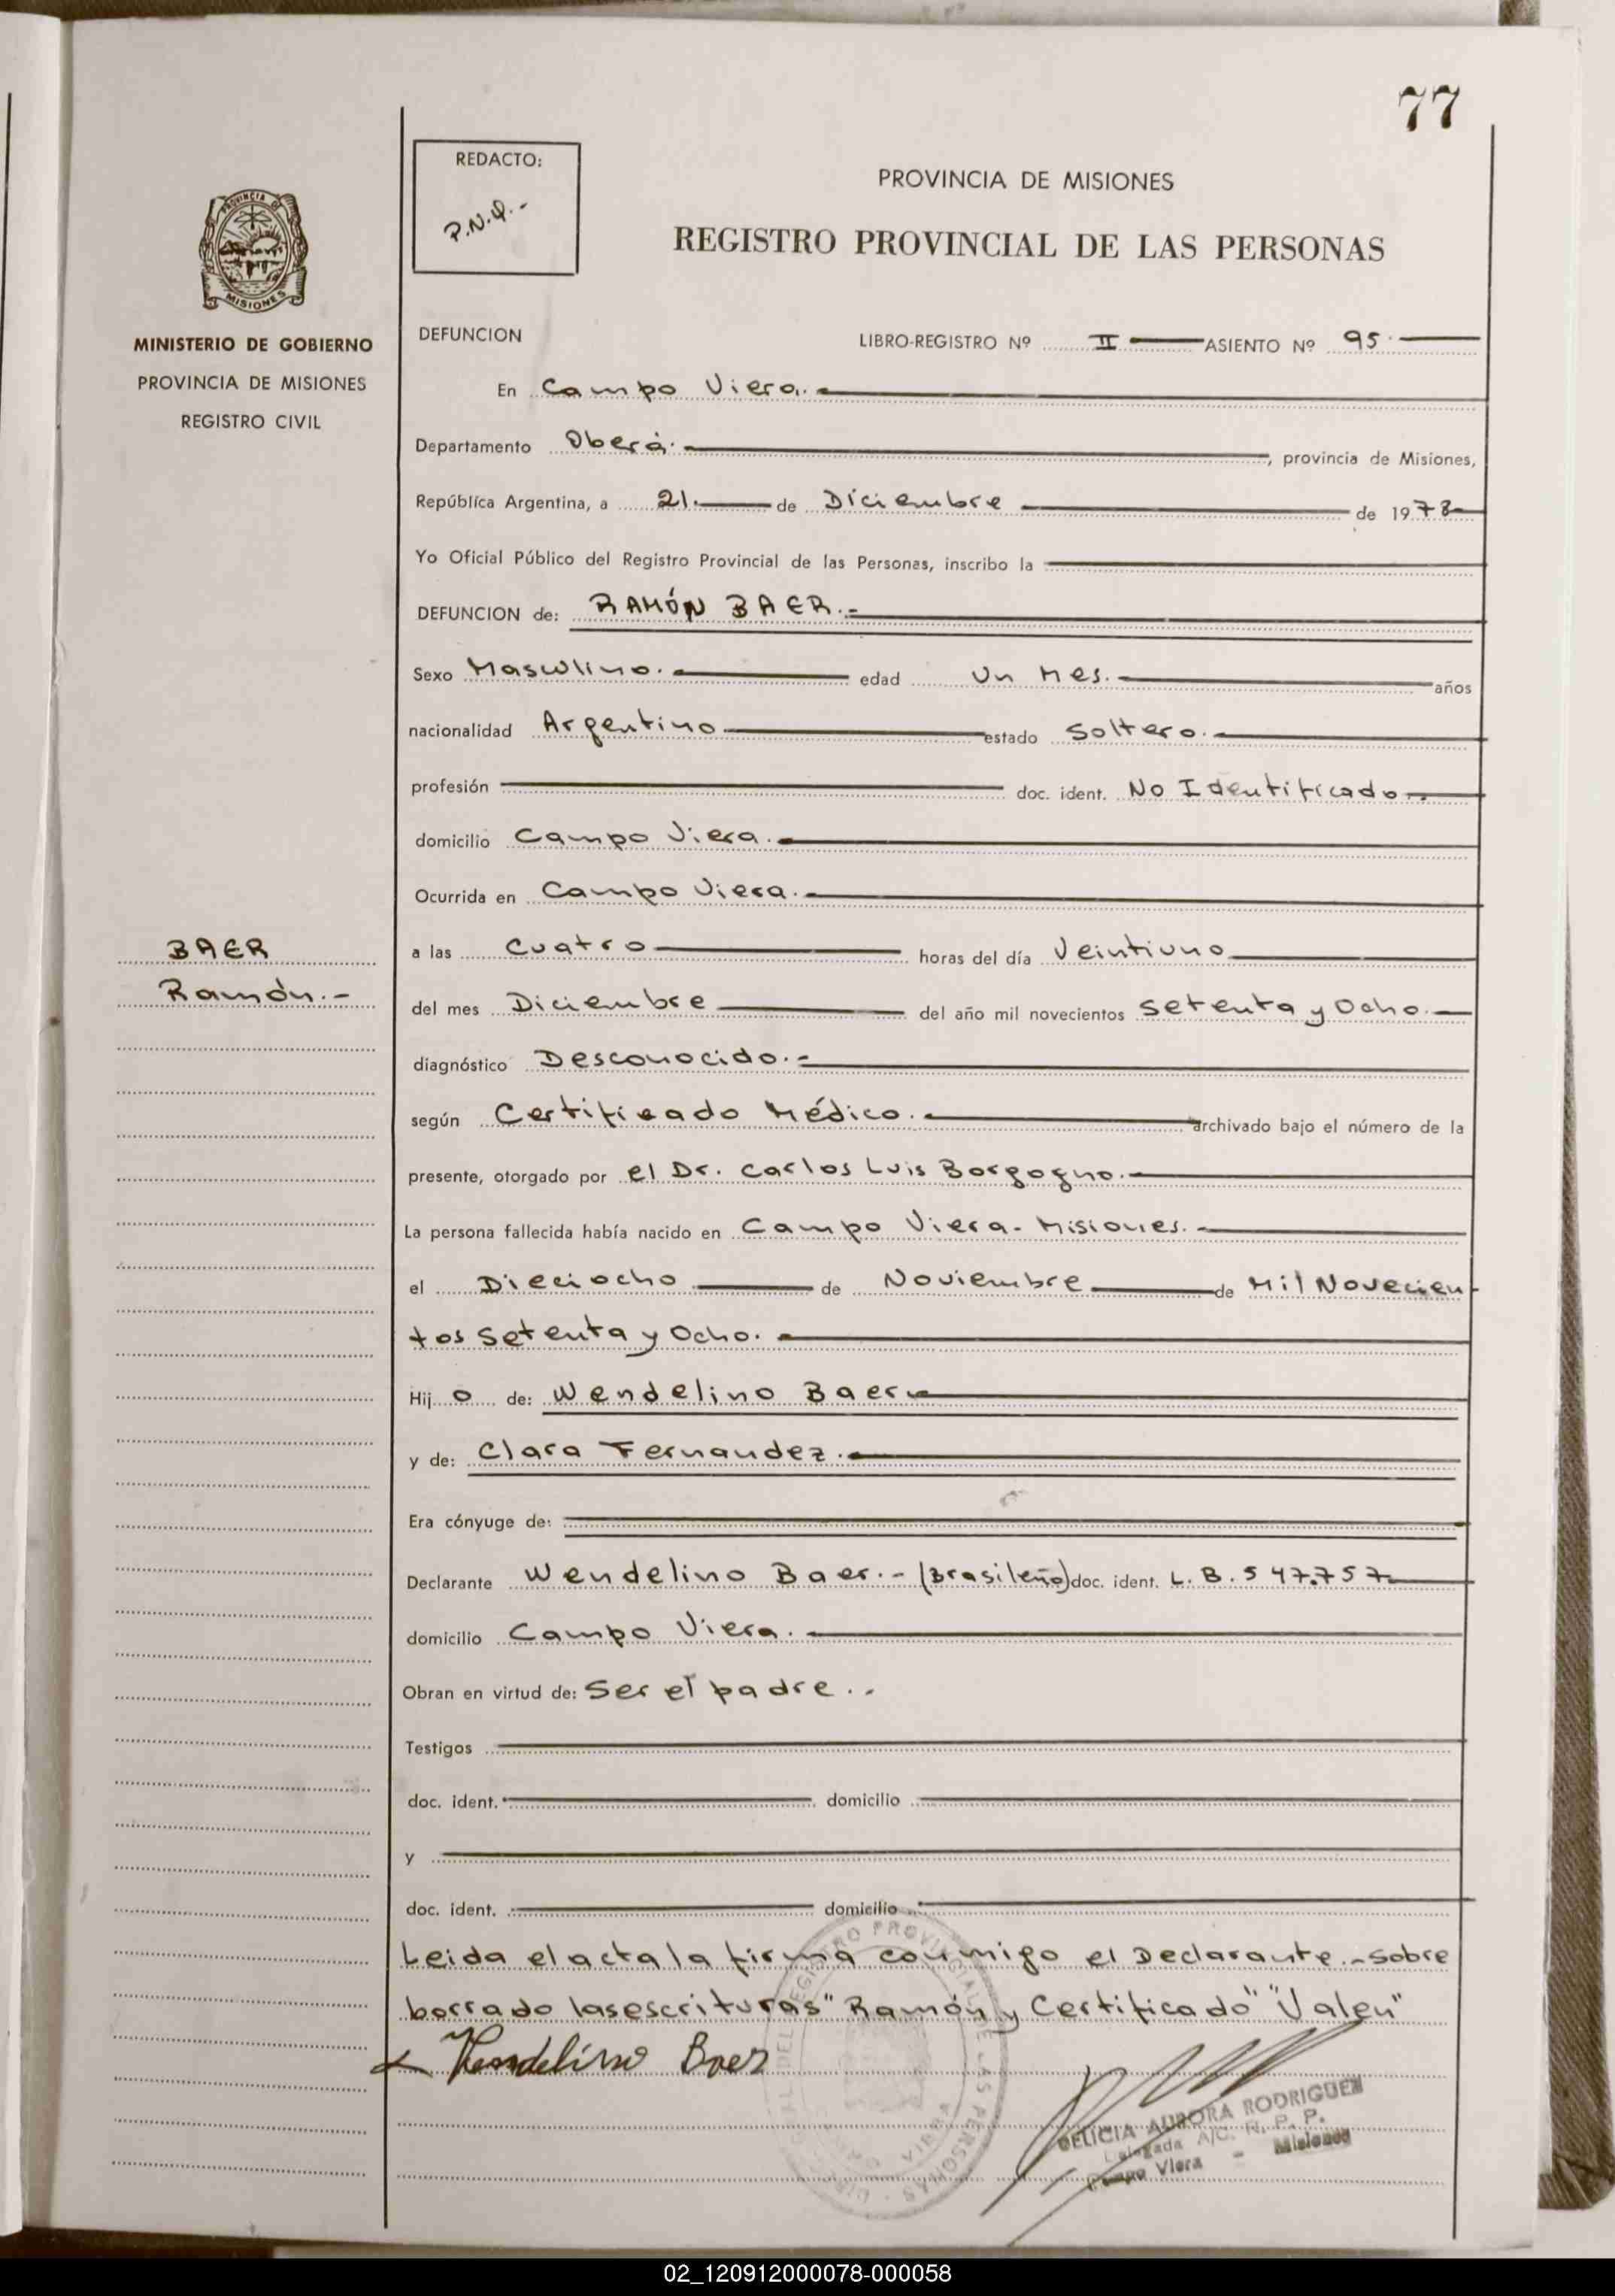 77
REDACTO:
P.N.Q.-
PROVINCIA DE MISIONES
REGISTRO PROVINCIAL DE LAS PERSONAS
PROVINCIA DE
MISIONES
MINISTERIO DE GOBIERNO
PROVINCIA DE MISIONES
REGISTRO CIVIL
DEFUNCION LIBRO-REGISTRO Nº II ASIENTO Nº 95.
En Campo Viera.
Departamento Oberá. , provincia de Misiones,
República Argentina, a 21. de Diciembre de 1978
Yo Oficial Público del Registro Provincial de las Personas, inscribo la
DEFUNCION de: RAMÓN BAER.-
Sexo Masculino. edad Un Mes. años
nacionalidad Argentino estado Soltero.
profesión doc. ident. No Identificado.
domicilio Campo Viera.
Ocurrida en Campo Viera.
BAER
Ramón.-
a las Cuatro horas del día Veintiuno
del mes Diciembre del año mil novecientos Setenta y Ocho.
diagnóstico Desconocido.-
según Certificado Médico. archivado bajo el número de la
presente, otorgado por el Dr. Carlos Luis Borgogno.
La persona fallecida había nacido en Campo Viera - Misiones.
el Dieciocho de Noviembre de Mil Novecien
tos Setenta y Ocho.
Hijo de: Wendelino Baer
y de: Clara Fernandez.
Era cónyuge de:
Declarante Wendelino Baer.- (Brasileño) doc. ident. L.B. 547.757
domicilio Campo Viera.
Obran en virtud de: Ser el padre..
Testigos
doc. ident. domicilio
y
doc. ident. domicilio
Leida el acta la firma conmigo el Declarante.-Sobre
borrado las escrituras "Ramón y Certificado" "Valen"
Wendelino Baer
DELICIA AURORA RODRIGUEZ
Delegada A/C. R. P. P.
Campo Viera - Misiones
02_120912000078-000058